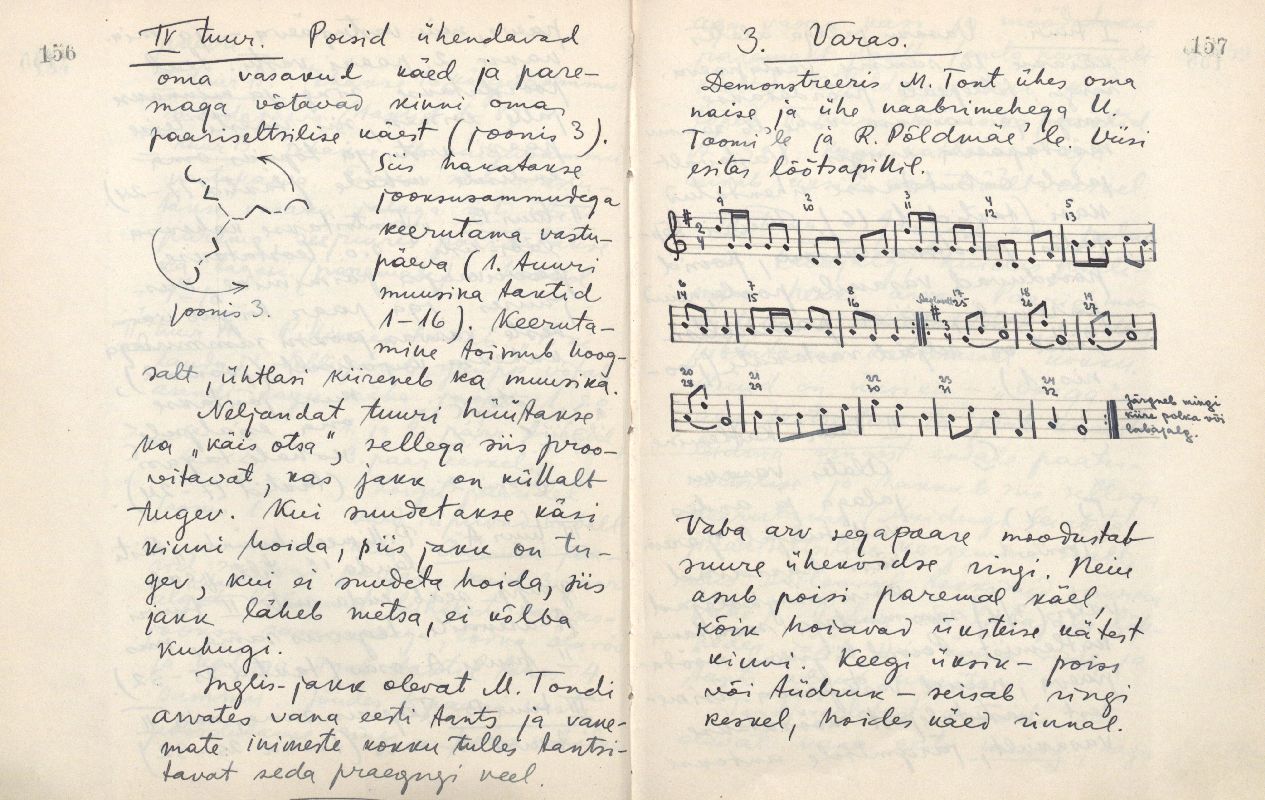 156
IV tuur. Poisid ühendavad
oma vasakud käed ja pare-
maga võtavad kinni oma
paariseltsilise käest (joonis 3).
Siis hakatakse
jooksusammudega
keerutama vastu-
päeva (1. tuuri
muusika taktid
1–16). Keeruta-
mine toimub hoog-
salt, ühtlasi kiireneb ka muusika.
joonis 3.
Neljandat tuuri hüütakse
ka „käis otsa", sellega siis proo-
vitavat, kas jakk on küllalt
tugev. Kui suudetakse käsi
kinni hoida, siis jakk on tu-
gev, kui ei suudeta hoida, siis
jakk läheb metsa, ei kõlba
kuhugi.
Inglis-jakk olevat M. Tondi
arvates vana eesti tants ja vane-
mate inimeste kokku tulles tantsi-
tavat seda praegugi veel.
157
3. Varas.
Demonstreeris M. Tont ühes oma
naise ja ühe naabrimehega U.
Toomi'le ja R. Põldmäe'le. Viisi
esitas lõõtsapillil.
1 9 2 10 3 11 4 12 5 13
2 4
6 14 7 15 8 16 17 25 18 26 19 27
3 4
20 28 21 29 22 30 23 31 24 32
Järgneb mingi
kiire polka või
labajalg.
Vaba arv segapaare moodustab
suure ühekordse ringi. Neiu
asub poisi paremal käel,
kõik hoiavad üksteise kätest
kinni. Keegi üksik – poiss
või tüdruk – seisab ringi
keskel, hoides käed rinnal.